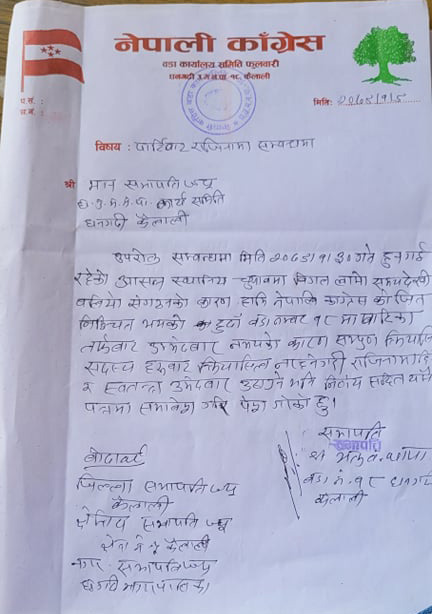 नेपाली काँग्रेस
वडा कार्यालय समिति फूलवारी
धनगढी उ.म.न.पा. १८, कैलाली
प.सं. :
च.नं. :
मिति: २०७९।१।५
विषय : पार्टिबाट राजिनामा सम्बन्धमा
श्री मान सभापति ज्यू
ध.उ.म.न.पा. कार्य समिति
धनगढी कैलाली
उपरोक्त सम्बन्धमा मिति २०७९।१।३० गते हुन गई
रहेको आसन्न स्थानिय चुनावमा विगत लामो समयदेखी
बलियो संगठनका कारण हामि नेपालि काग्रेस को जित
निश्चित भएको हुदाँ वडा नम्बर १८ मा पार्टिका
तर्फबाट उम्मेदवार नभएको कारण सम्पुर्ण क्रियाशिल
सदस्य हरुबाट राजिनामा
र स्वतन्त्र उम्मेदवार उठाउने भनि निर्णय सहित यसै
पत्रमा समावेश गरि पेश गरेको छु।
सभापति
सभापति
थापा
वडा नं. १८ धनगढी
कैलाली
बोधार्थ
जिल्ला सभापति ज्यू
कैलाली
क्षेत्रिय सभापति ज्यू
क्षेत्र नं कैलाली
नगर सभापति ज्यू
धनगढी